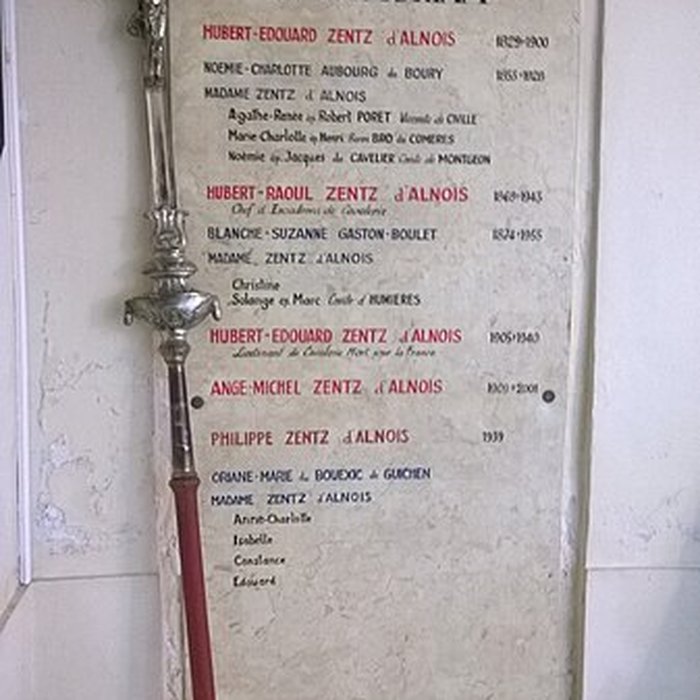 HUBERT-EDOUARD ZENTZ d'ALNOIS 1829-1900
NOEMIE-CHARLOTTE AUBOURG de BOURY
MADAME ZENTZ d'ALNOIS
Agathe-Renée ép. Robert PORET Vicomte de CIVILLE
Marie Charlotte ép. Henri Baron BRO de COMERES
Noémie ép. Jacques du CAVELIER Comte de MONTGEON
HUBERT-RAOUL ZENTZ d'ALNOIS 1868-1943
Chef d'Escadrons de Cavalerie
BLANCHE-SUZANNE GASTON-BOULET 1874-1955
MADAME ZENTZ d'ALNOIS
Christine
Solange ép. Marc Comte d'HUMIERES
HUBERT-EDOUARD ZENTZ d'ALNOIS 1905-1940
Lieutenant de Cavalerie Mort pour la France
ANGE-MICHEL ZENTZ d'ALNOIS 1909-2001
PHILIPPE ZENTZ d'ALNOIS 1939
ORIANE-MARIE du BOUEXIC de GUICHEN
MADAME ZENTZ d'ALNOIS
Anne-Charlotte
Isabelle
Constance
Edouard